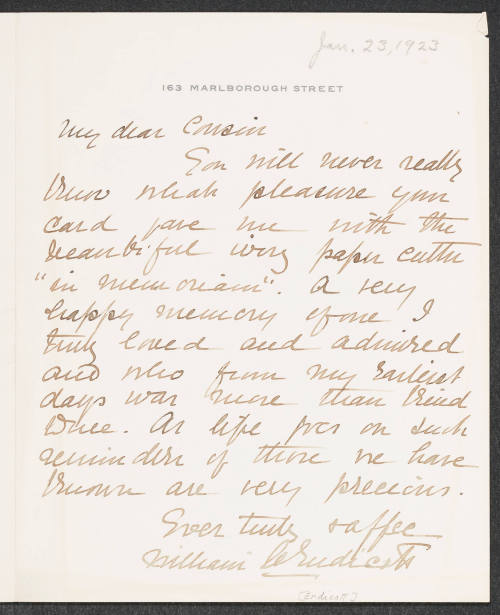 Jan. 23, 1923
163 MARLBOROUGH STREET
My dear Cousin
You will never really
know what pleasure your
card gave me with the
beautiful ivory paper cutter
"in memoriam". A very
happy memory of one I
truly loved and admired
and who from my earliest
days was more than kind
to me. As life goes on such
reminders of those we have
known are very precious.
Ever truly & affec
William C Endicott
[Endicott]